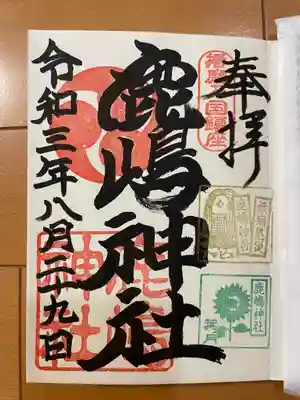 奉拝
鹿嶋神社
令和三年八月二十九日
鹿嶋
神社
鹿嶋神社
葉月